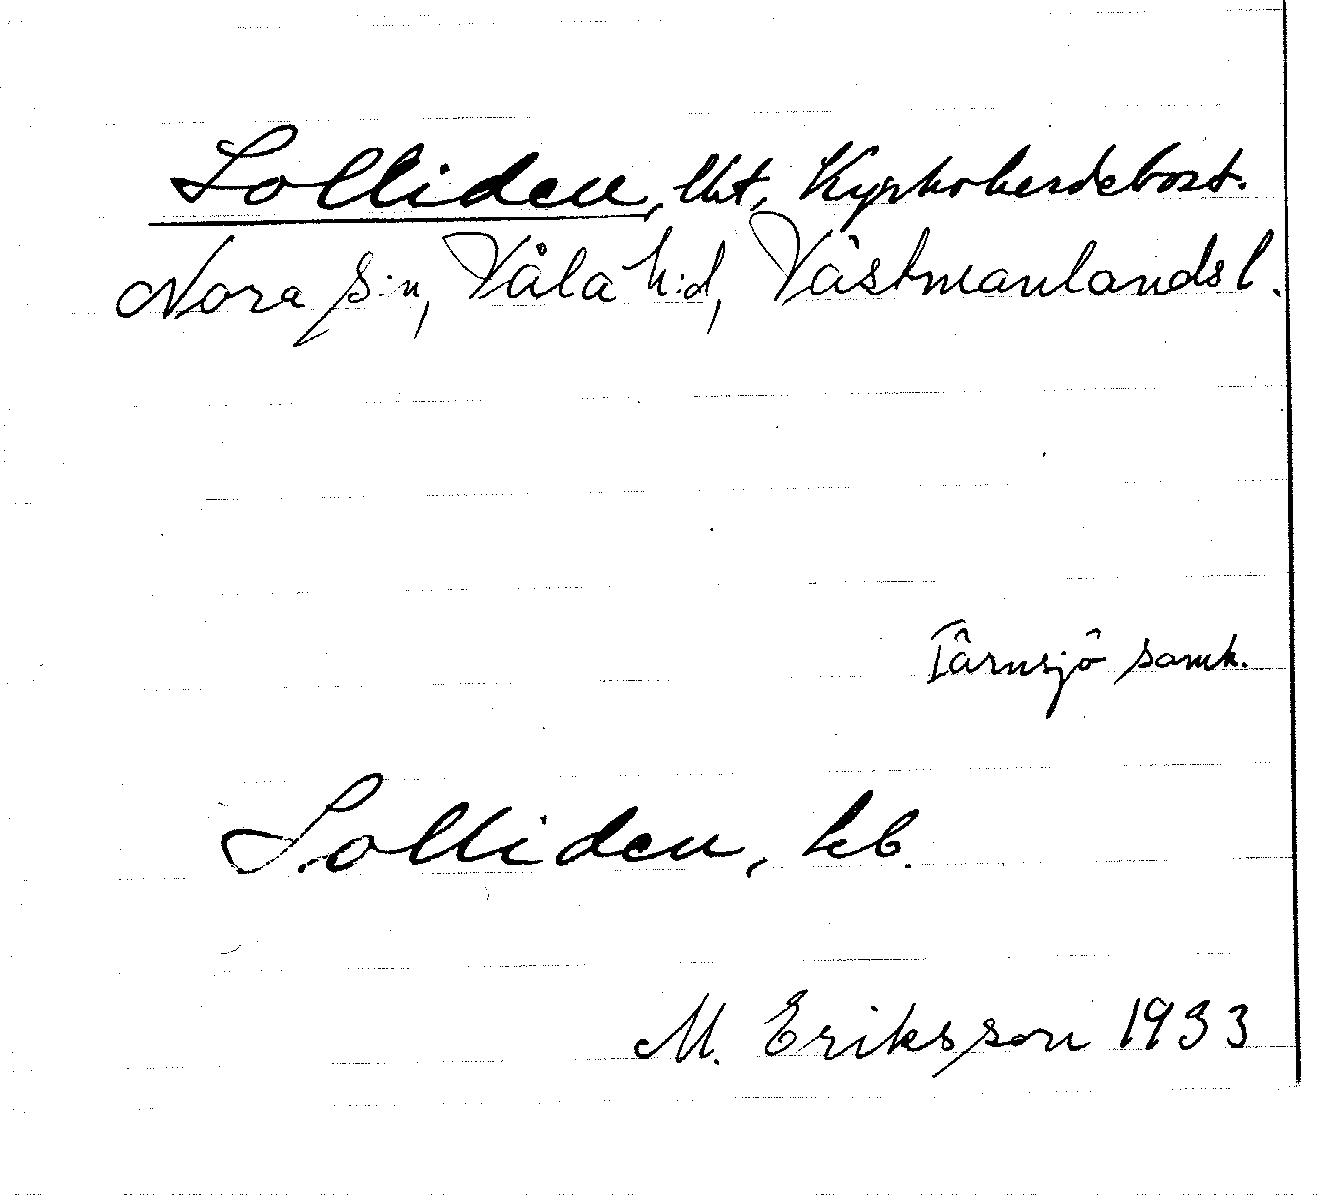 Solliden, lht, Kyrkoherdebost.
Nora s:n, Våla h:d, Västmanlands l.
Tärnsjö samk.
Solliden, heb.
M. Eriksson 1933